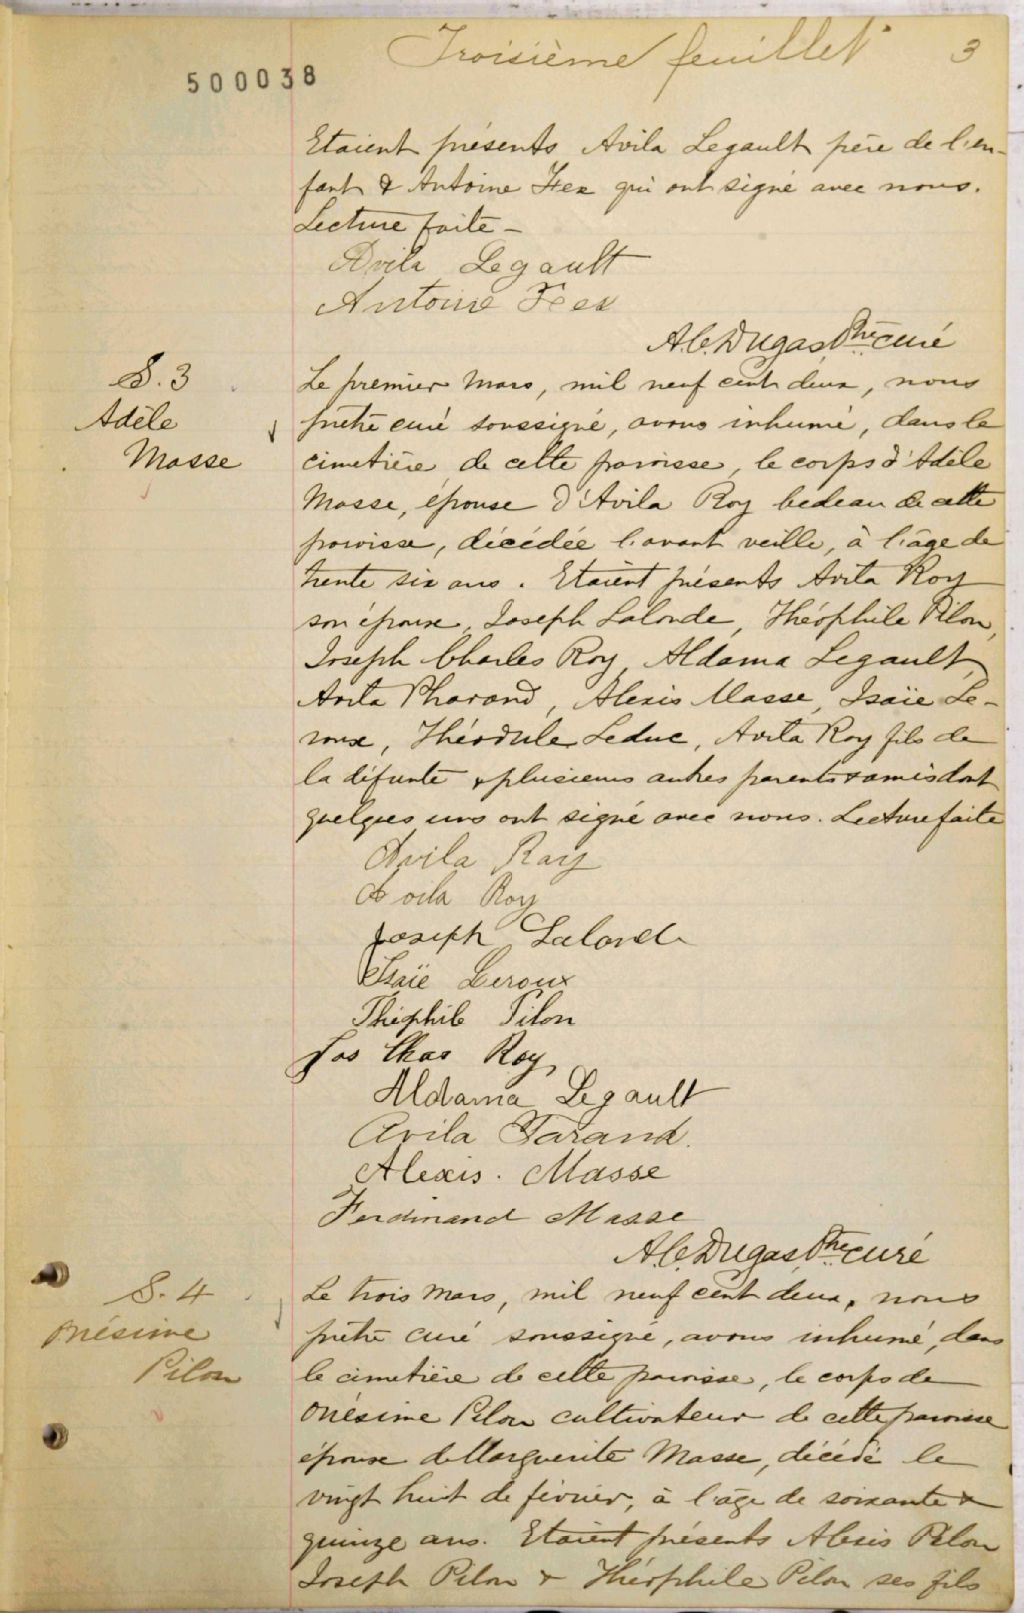 Troisième feuillet 3
500038
Etaient présents Avila Legault père de l'en-
fant & Antoine Fex qui ont signé avec nous.
Lecture faite -
Avila Legault
Antoine Fex
A.C. Dugas Ptre curé
S. 3
Adèle
Masse
Le premier Mars, mil neuf cent deux, nous
prêtre curé soussigné, avons inhumé, dans le
cimetière de cette paroisse, le corps d'Adèle
Masse, épouse d'Avila Roy bedeau de cette
paroisse, décédée l'avant veille, à l'âge de
trente six ans. Etaient présents Avila Roy
son époux, Joseph Lalonde, Théophile Pilon,
Joseph Charles Roy, Aldama Legault,
Avila Pharand, Alexis Masse, Isaïe Le-
roux, Théodule Leduc, Avila Roy fils de
la défunte & plusieurs autres parents & amis dont
quelques uns ont signé avec nous. Lecture faite
Avila Roy
Avila Roy
Joseph Lalonde
Isaïe Leroux
Théophile Pilon
Jos Chas Roy,
Aldama Legault
Avila Farand.
Alexis. Masse
Ferdinand Masse
A.C. Dugas, Ptre curé
S. 4
Onésime
Pilon
Le trois Mars, mil neuf cent deux, nous
prêtre curé soussigné, avons inhumé, dans
le cimetière de cette paroisse, le corps de
Onésime Pilon cultivateur de cette paroisse
époux de Marguerite Masse, décédé le
vingt huit de février, à l'âge de soixante &
quinze ans. Etaient présents Alexis Pilon
Joseph Pilon & Théophile Pilon ses fils